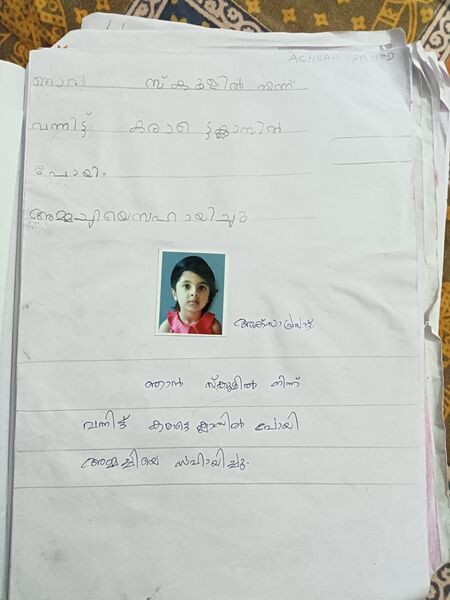 ACHSAH PRASAD
ഞാൻ സ്കൂളിൽ നിന്ന്
വന്നിട്ട് കരാട്ടെ ക്ലാസിൽ
പോയി.
അമ്മച്ചിയെസഹായിച്ചു
അക്സാ പ്രസാദ്
ഞാൻ സ്കൂളിൽ നിന്ന്
വന്നിട്ട് കരാട്ടെ ക്ലാസിൽ പോയി
അമ്മച്ചിയെ സഹായിച്ചു.